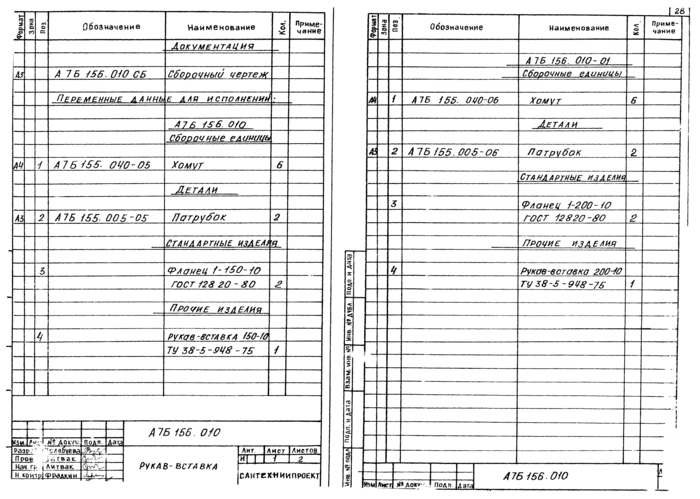 Формат Зона Поз. Обозначение Наименование Кол. Приме-
чание
Документация
А3 А7Б 156.010 СБ Сборочный чертеж
Переменные данные для исполнений:
А7Б 156.010
Сборочные единицы
А4 1 А7Б 155. 040-05 Хомут 6
Детали
А3 2 А7Б 155.005-05 Патрубок 2
Стандартные изделия
3 Фланец 1-150-10
ГОСТ 12820-80 2
Прочие изделия
4 Рукав-вставка 150-10
ТУ 38-5-948-75 1
А7Б 156.010
Изм. Лис № докум. Подп. Дата
Разраб
Пров Литвак
Нач.гр Литвак
Н.контр Фрадкин
Рукав-вставка
Лит Лист Листов
И 1 2
САНТЕХНИИПРОЕКТ
28
Формат Зона Поз Обозначение Наименование Кол Приме-
чание
А7Б 156. 010-01
Сборочные единицы
А4 1 А7Б 155. 040-06 Хомут 6
Детали
А3 2 А7Б 155.005-06 Патрубок 2
Стандартные изделия
3 Фланец 1-200-10
ГОСТ 12820-80 2
Прочие изделия
4 Рукав-вставка 200-10
ТУ 38-5-948-75 1
Подп. и дата
Инв. № дубл.
Взам. инв. №
Подп. и дата
Инв. № подл.
Изм Лист № докум. Подп. Дата
А7Б 156.010